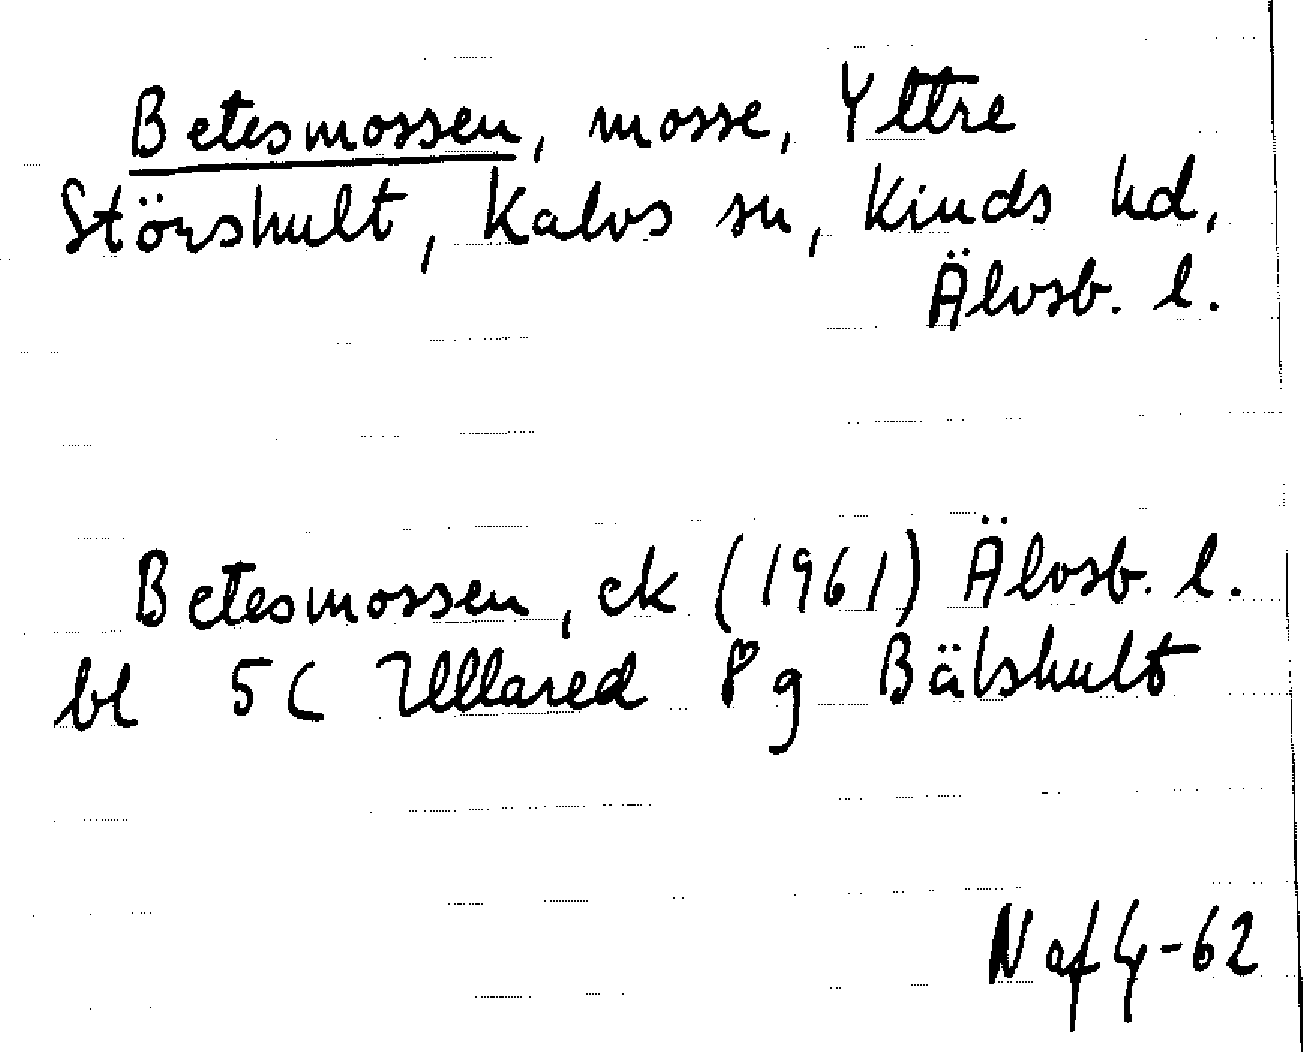 Betesmossen, mosse, Yttre
Störshult, Kalvs sn, Kinds hd,
Älvsb. l.
Betesmossen, ek (1961) Älvsb. l.
bl 5C Ullared 8g Bälshult
N af G-62